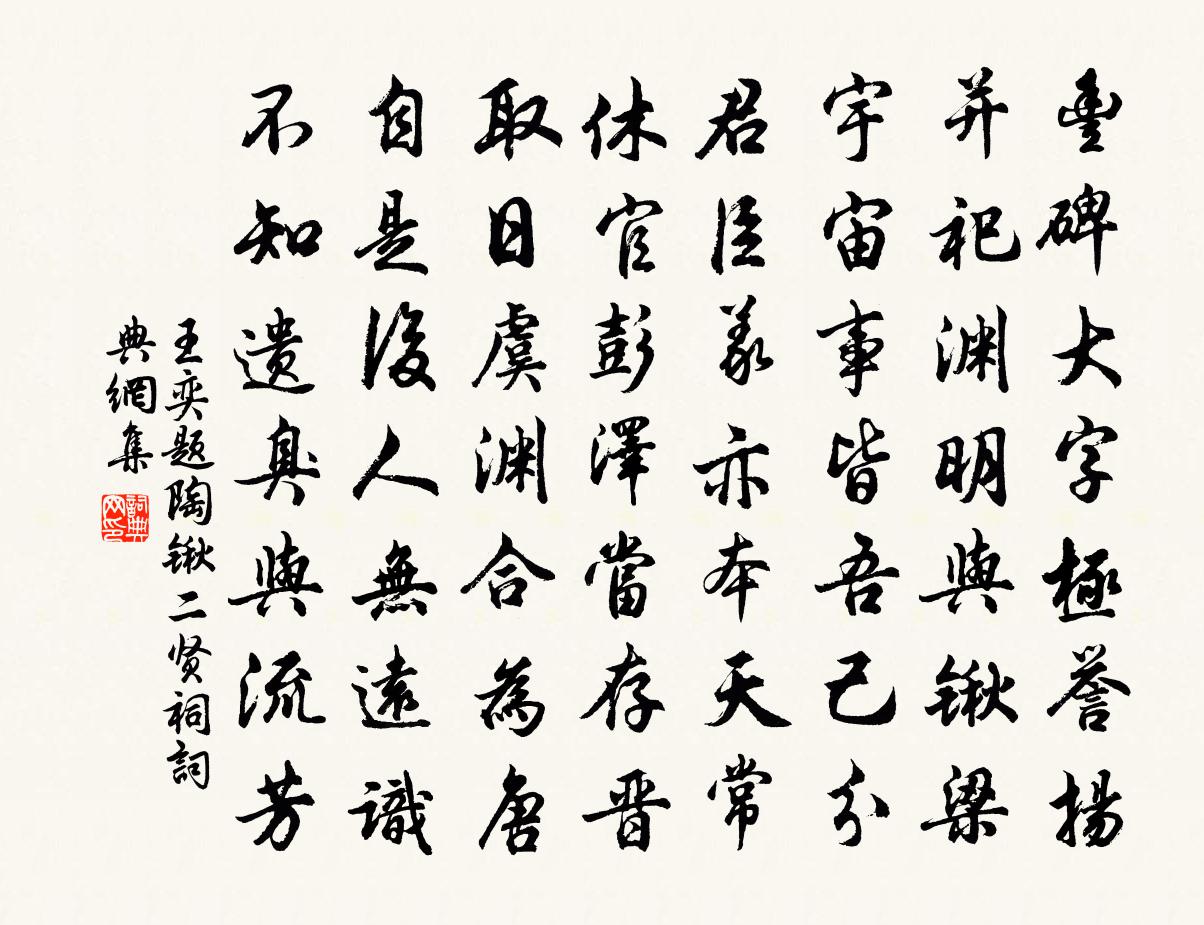 豊碑大字極誉揚
并祀渊明與锹梁
宇宙事皆吾己分
君臣義亦本天常
休官彭澤當存晋
取日虞渊合為唐
自是後人無遠識
不知遗臭與流芳
王奕题陶锹二贤祠詞
典網集
詞典网印